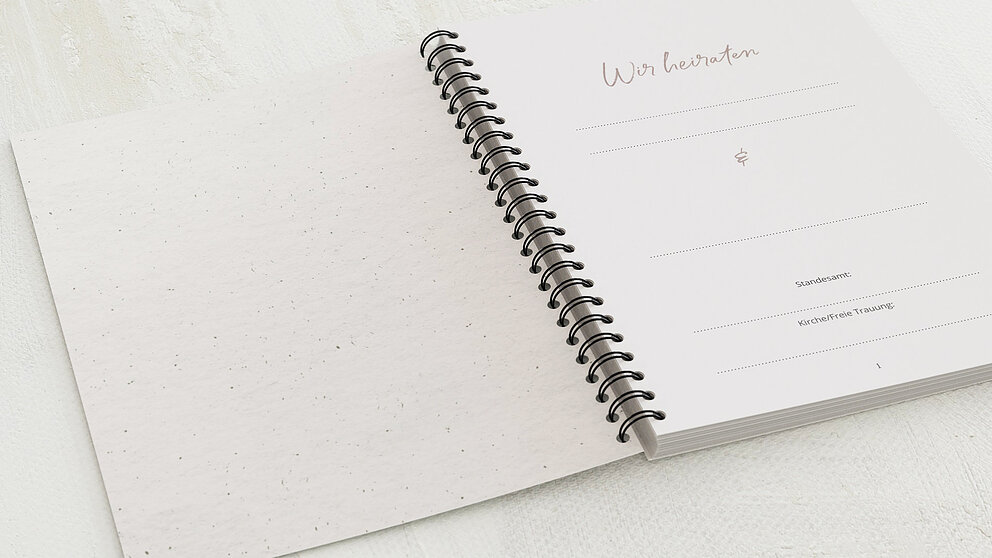 Wir heiraten
&
Standesamt:
Kirche/Freie Trauung:
1